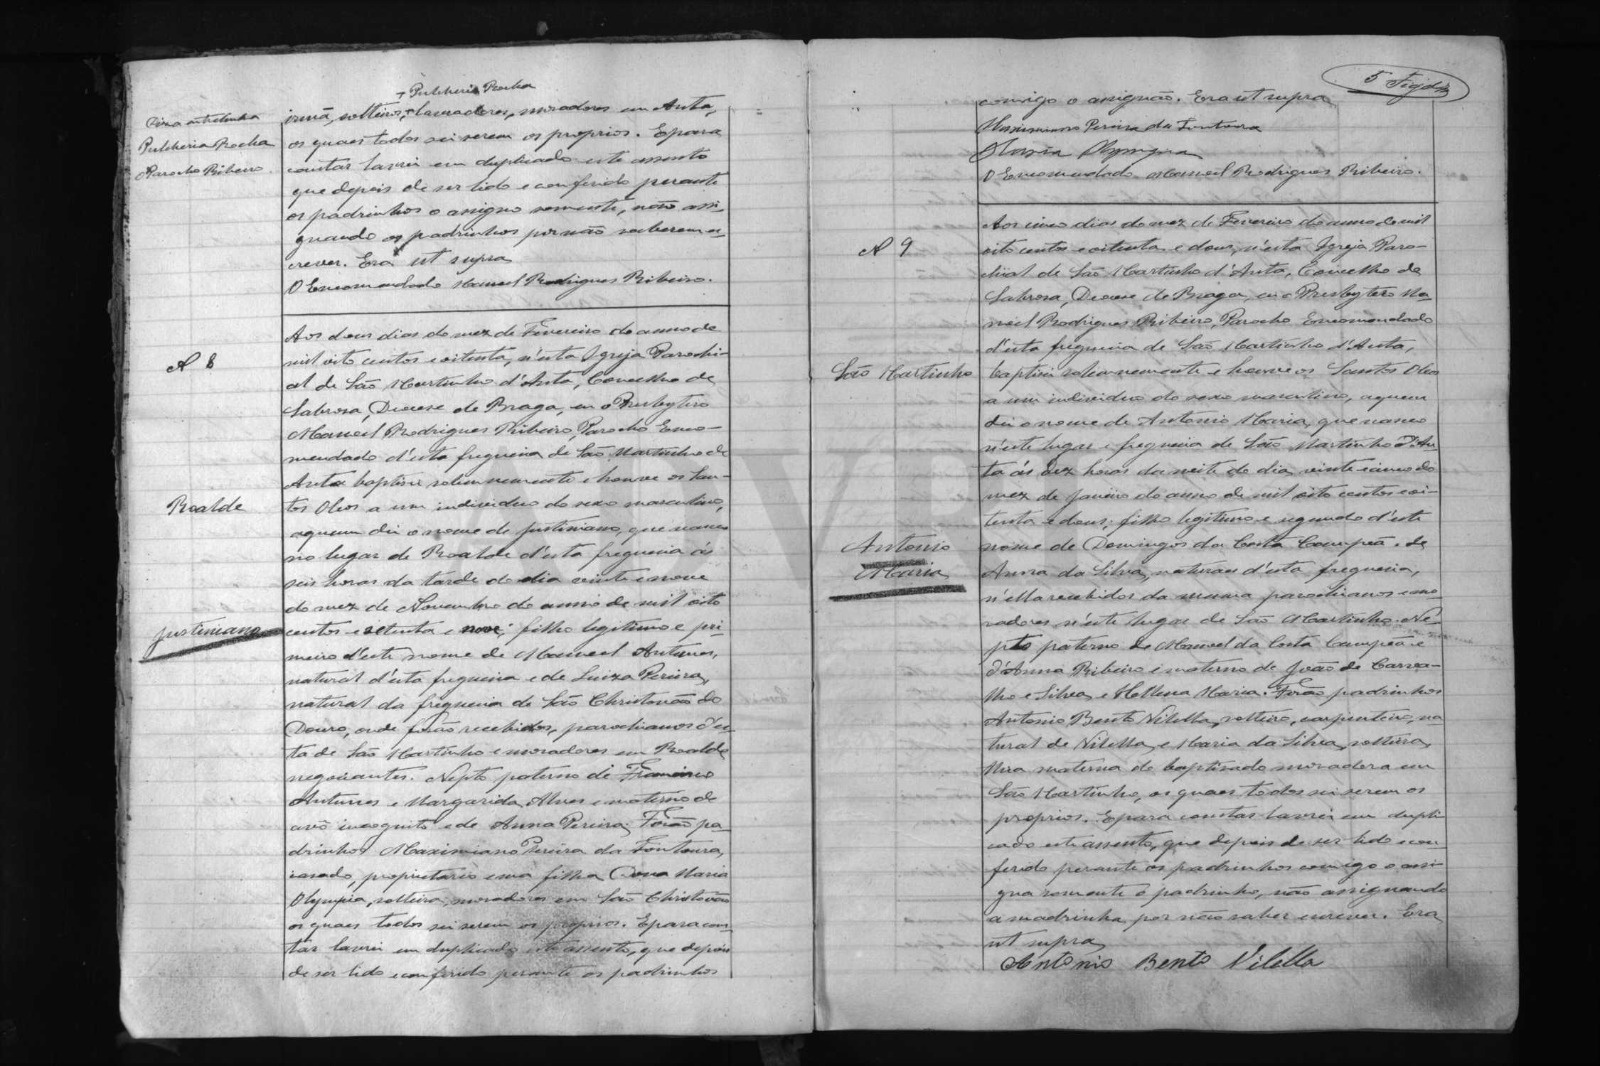 + Pulcheria Rocha
Pulcheria Rocha
O Parocho Ribeiro.
irmã, solteiros, lavradores, moradores em Anta,
os quaes todos sei serem os proprios. E para
constar lavrei em duplicado este assento
que depois de ser lido e conferido perante
os padrinhos o assigno somente, não assi-
gnando os padrinhos por não saberem es-
crever. Era ut supra
O Encomendado Manoel Rodrigues Ribeiro.
N 8
Roalde
Justiniano
Aos dous dias do mez de Fevereiro do anno de
mil oito centos e oitenta, n'esta Igreja Parochi-
al de São Martinho d'Anta, Concelho de
Sabrosa, Diocese de Braga, eu o Presbytero
Manoel Rodrigues Ribeiro, Parocho Enco-
mendado d'esta freguesia de São Martinho de
Anta baptisei solemnemente e houve os San-
tos Oleos a um individuo do sexo masculino,
a quem dei o nome de Justiniano, que nasceu
no lugar de Roalde d'esta freguesia ás
seis horas da tarde do dia vinte e nove
do mez de Novembro do anno de mil oito
centos e setenta e nove; filho legitimo e pri-
meiro d'este nome de Manoel Antunes,
natural d'esta freguesia e de Luiza Pereira,
natural da freguesia de São Christovão do
Douro, onde forão recebidos, parochianos d'es-
ta de São Martinho e moradores em Roalde
negociantes. Nepto paterno de Francisco
Antunes e Margarida Alves e materno de
avô incognito e de Anna Pereira; Forão pa-
drinhos Maximiano Pereira da Fontoura,
casado, proprietario e sua filha Dona Maria
Olympia, solteira, moradores em São Christovão
os quaes todos sei serem os proprios. E para cons-
tar lavrei em duplicado este assento, que depois
de ser lido e conferido perante os padrinhos
5
comigo o assignão. Era ut supra
Maximiano Pereira da Fontoura
Maria Olympia
O Encomendado Manoel Rodrigues Ribeiro.
N 9
São Martinho
Antonio
Maria
Aos cinco dias do mez de Fevereiro do anno de mil
oito centos e oitenta e dous, n'esta Igreja Paro-
chial de São Martinho d'Anta, Concelho de
Sabrosa, Diocese de Braga, eu o Presbytero Ma-
noel Rodrigues Ribeiro, Parocho Encomendado
d'esta freguesia de São Martinho d'Anta,
baptisei solemnemente e houve os Santos Oleos
a um individuo do sexo masculino, a quem
dei o nome de Antonio Maria, que nasceu
n'este lugar e freguesia de São Martinho d'An-
ta ás dez horas da noite do dia vinte e cinco do
mez de Janeiro do anno de mil oito centos e oi-
tenta e dous; filho legitimo e segundo d'este
nome de Domingos da Costa Campeã e de
Anna da Silva, naturaes d'esta freguesia,
n'ella recebidos da mesma parochianos e mo-
radores n'este lugar de São Martinho. Ne-
pto paterno de Manoel da Costa Campeã e
d'Anna Ribeiro e materno de João de Carva-
lho e Silva e Hellena Maria. Forão padrinhos
Antonio Bento Vilella, solteiro, carpenteiro, na-
tural de Vilella e Maria da Silva, solteira,
thia materna do baptisado moradora em
São Martinho, os quaes todos sei serem os
proprios. E para constar lavrei em dupli-
cado este assento, que depois de ser lido e con-
ferido perante os padrinhos comigo o assi-
gna somente o padrinho, não assignando
a madrinha por não saber escrever. Era
ut supra
Antonio Bento Vilella